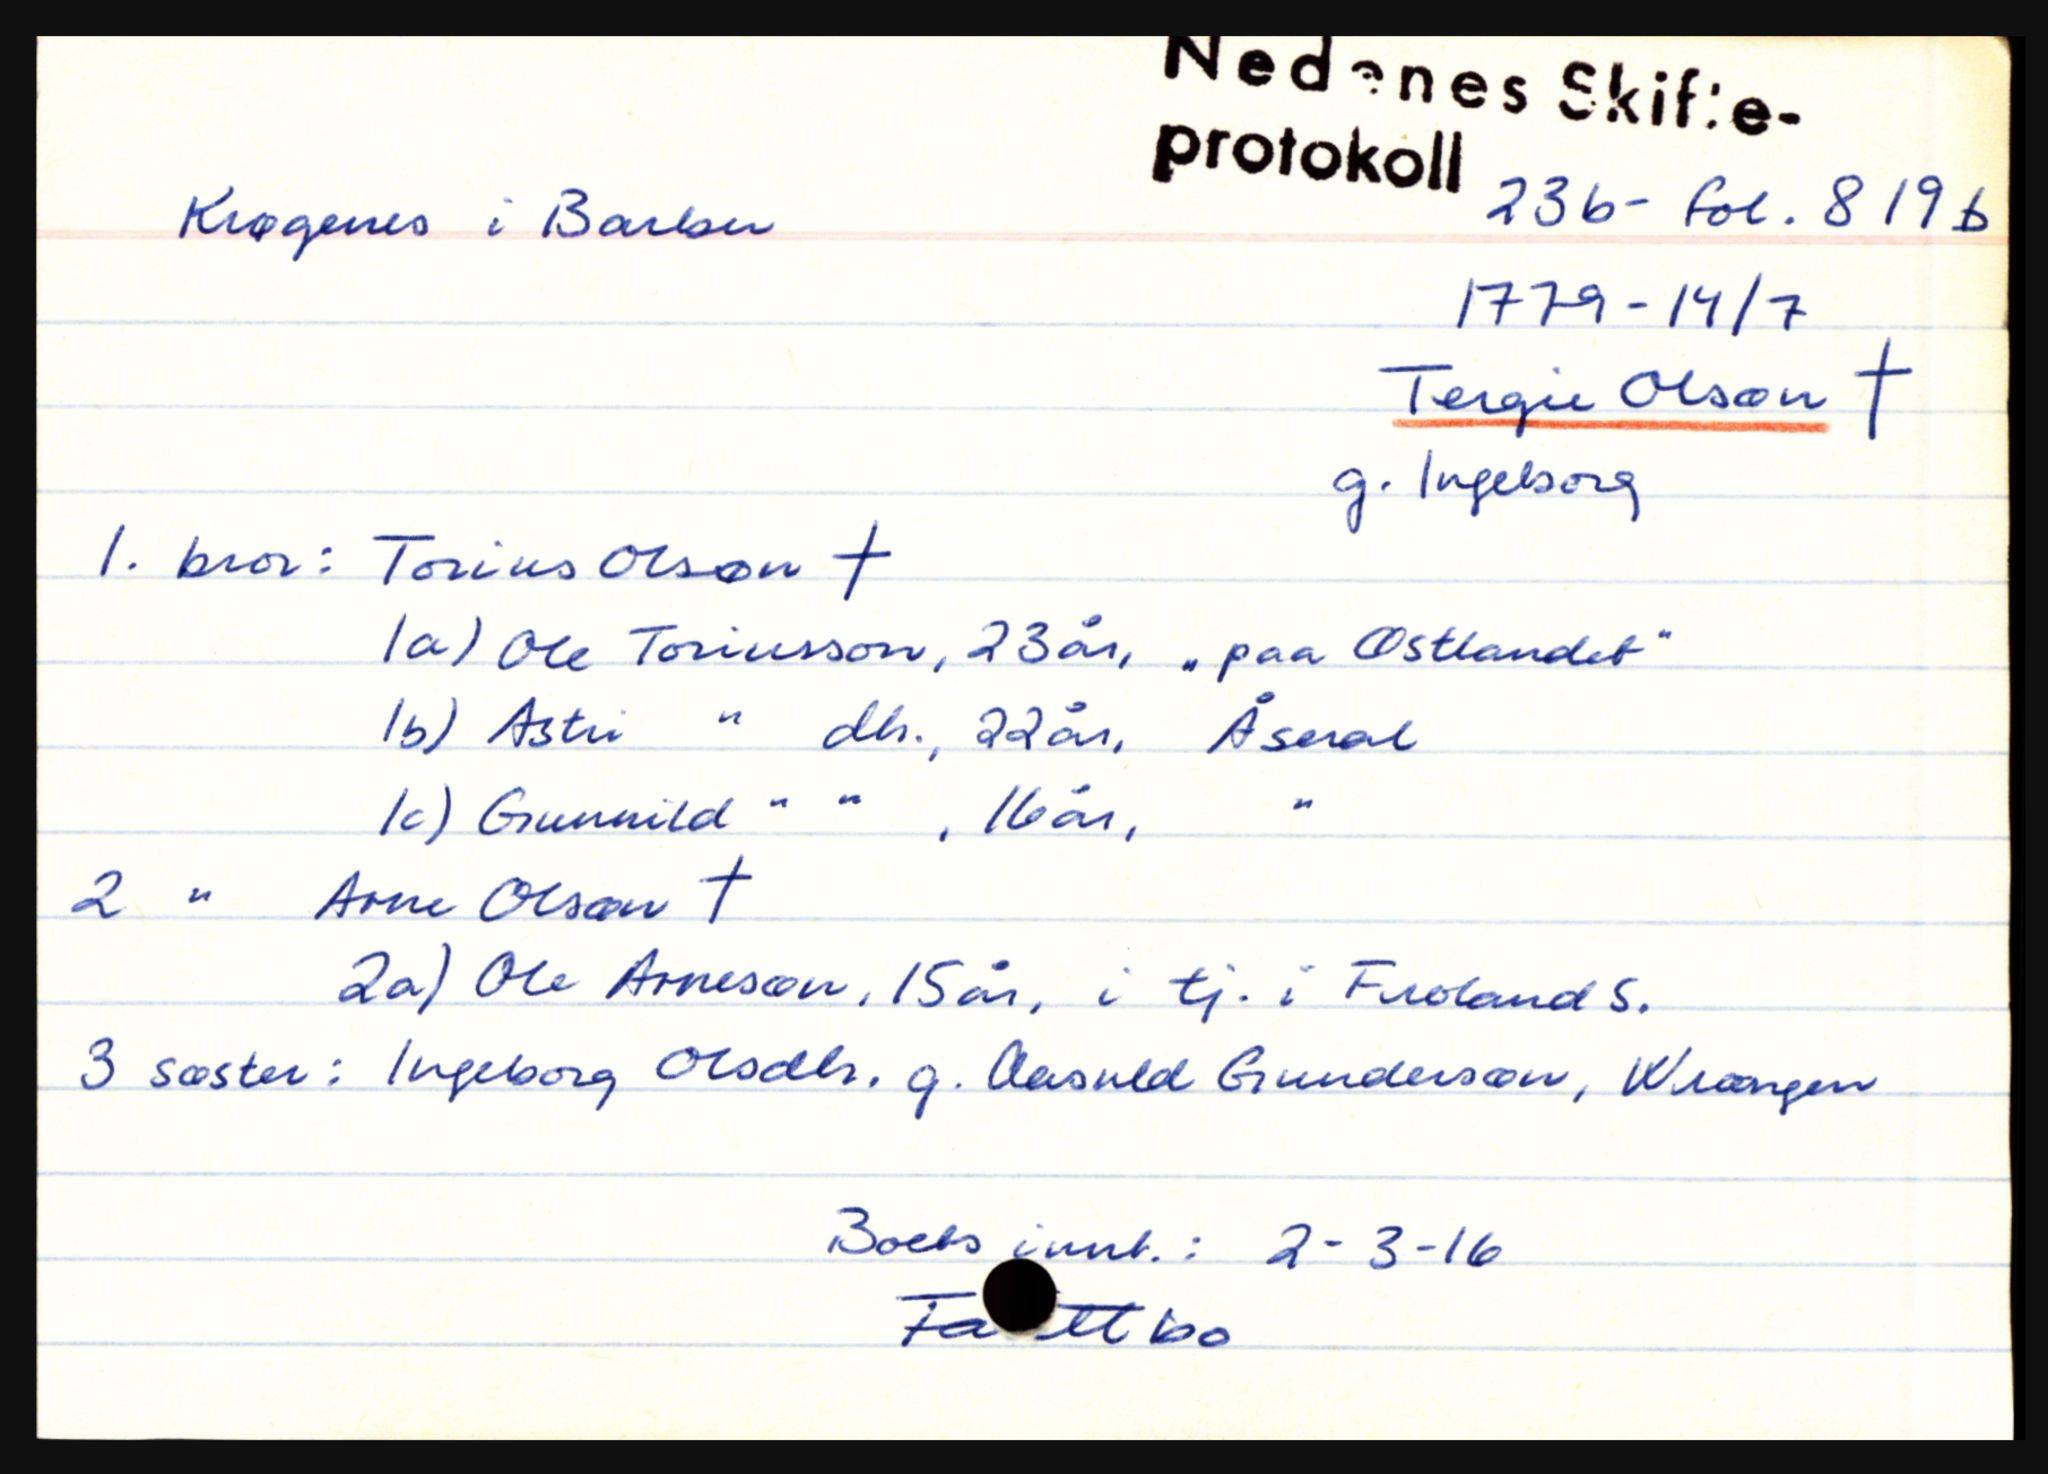 Nedenes Skifte-
protokoll
Krøgenes i Barbu 23b- fol. 819b
1779-14/7
Tergie Olsøn †
g. Ingeborg
1. bror: Torius Olsøn †
1a) Ole Toriussøn, 23 år, „paa Østlandet"
1b) Astri " dtr., 22 år, Åseral
1c) Gunnild " " , 16 år, "
2 " Arne Olsøn †
2a) Ole Arnesøn, 15 år, i tj. i Froland S.
3 søster: Ingeborg Olsdtr. g. Aasuld Gundersøn, Wrængen
Boets innt.: 2-3-16
Fa tt bo